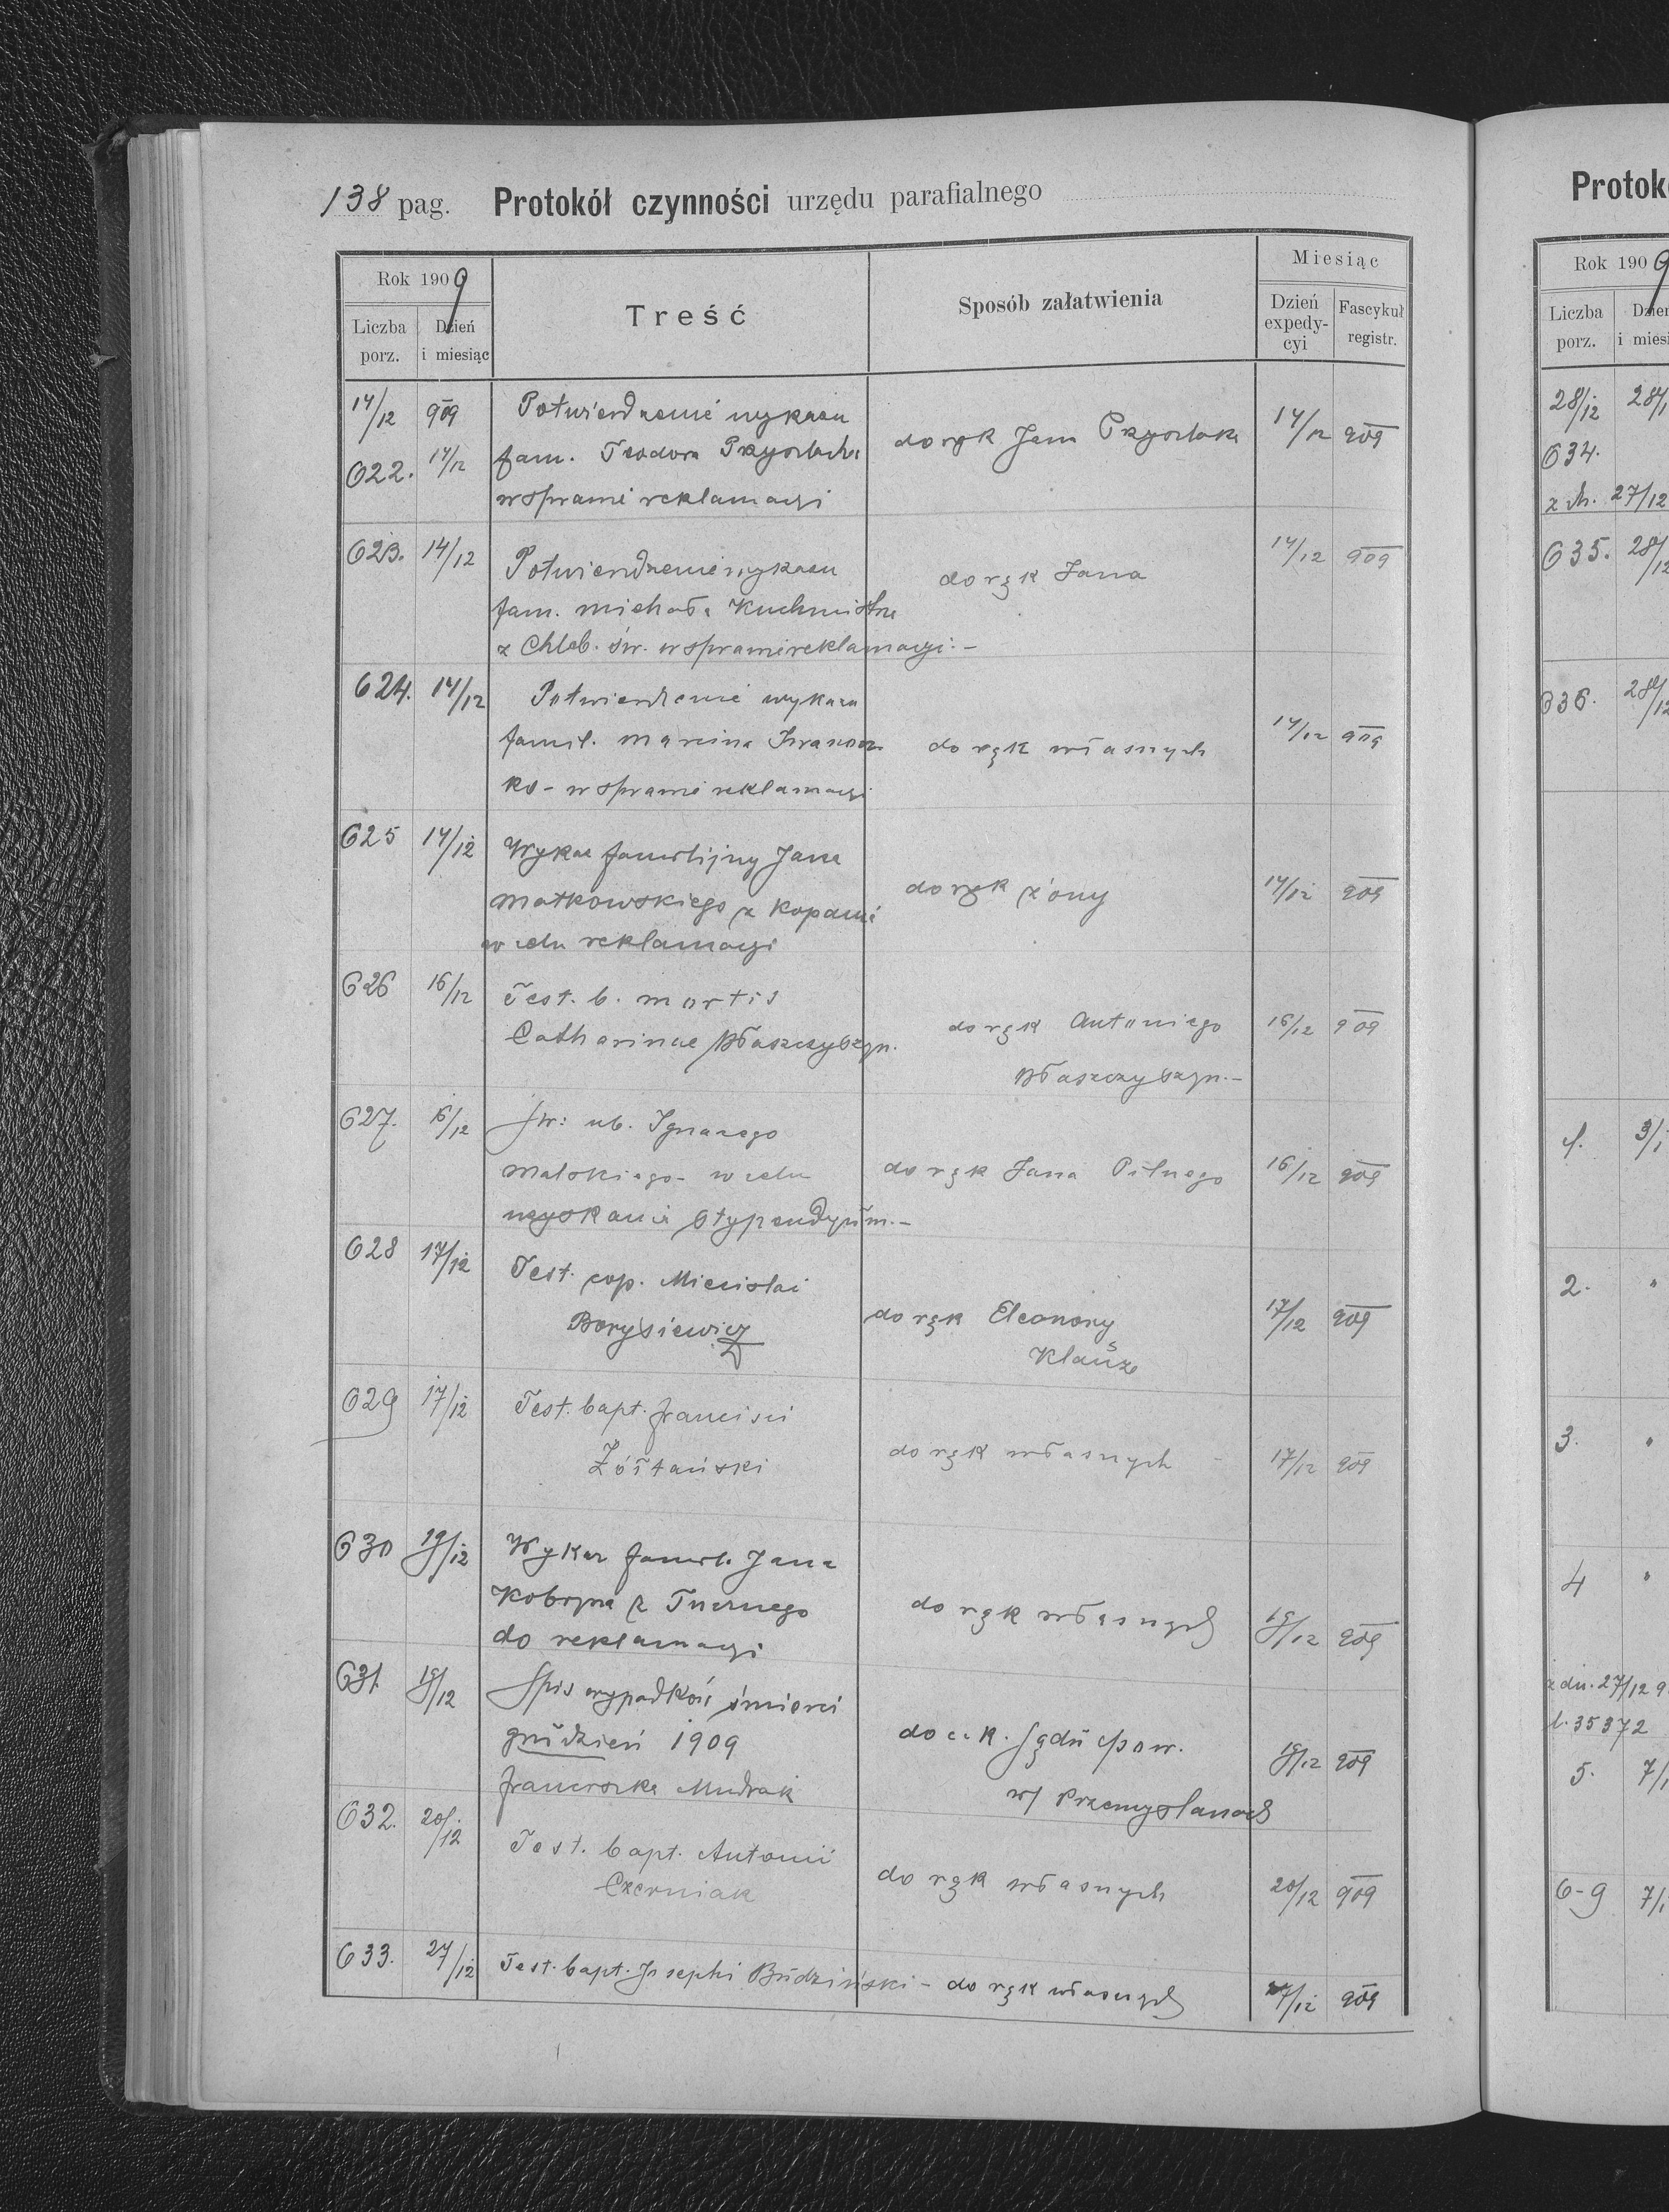 138 pag. Protokół czynności urzędu parafialnego
Rok 1909
Liczba porz.
Dzień i miesiąc
Treść
Sposób załatwienia
Miesiąc
Dzień expedycyi
Fascykuł registr.
14/12 909 Potwierdzenie wykazu
622. 14/12 fam. Teodora Przyszlaka do rąk Jana Przyszlaka 14/12 909
w sprawie reklamacyi
623. 14/12 Potwierdzenie wykazu do rąk Jana 14/12 909
fam. Michała Kuchmistrza
z Chleb. św. w sprawie reklamacyi. –
624. 14/12 Potwierdzenie wykazu
famil. Marcina Iwanow- do rąk własnych 14/12 909
ko – w sprawie reklamacyi
625 14/12 Wykaz familijny Jana
Matkowskiego z Kopani do rąk żony 14/12 909
w celu reklamacyi
626 16/12 Test. b. mortis
Catharinae Błaszczyszyn. do rąk Antoniego 16/12 909
Błaszczyszyn. –
627. 16/12 Św: ub. Ignacego
Malskiego – w celu do rąk Jana Pilnego 16/12 909
uzyskania stypendyum. –
628 17/12 Test. cop. Miecislai
Borysiewicz do rąk Eleonory 17/12 909
Klauze
629 17/12 Test. bapt. Francisci
Żółtański do rąk własnych – 17/12 909
630 19/12 Wykaz famil. Jana
Kobryna z Tucznego do rąk własnych 19/12 909
do reklamacyi
631. 19/12 Spis wypadków śmierci
grudzień 1909 do c. k. Sądu pow. 19/12 909
Franciszka Mudrak w/ Przemyślanach
632. 20/12 Test. bapt. Antonii
Czerniak do rąk własnych 20/12 909
633. 27/12 Test. bapt. Josephi Budziński – do rąk własnych 27/12 909
Protok
Rok 1909
Liczba porz.
28/12
634.
27/12
635.
636.
1. 3/1
2. "
3. "
4 "
z dn. 27/12 9
l. 35372
5. 7/1
6-9 7/1